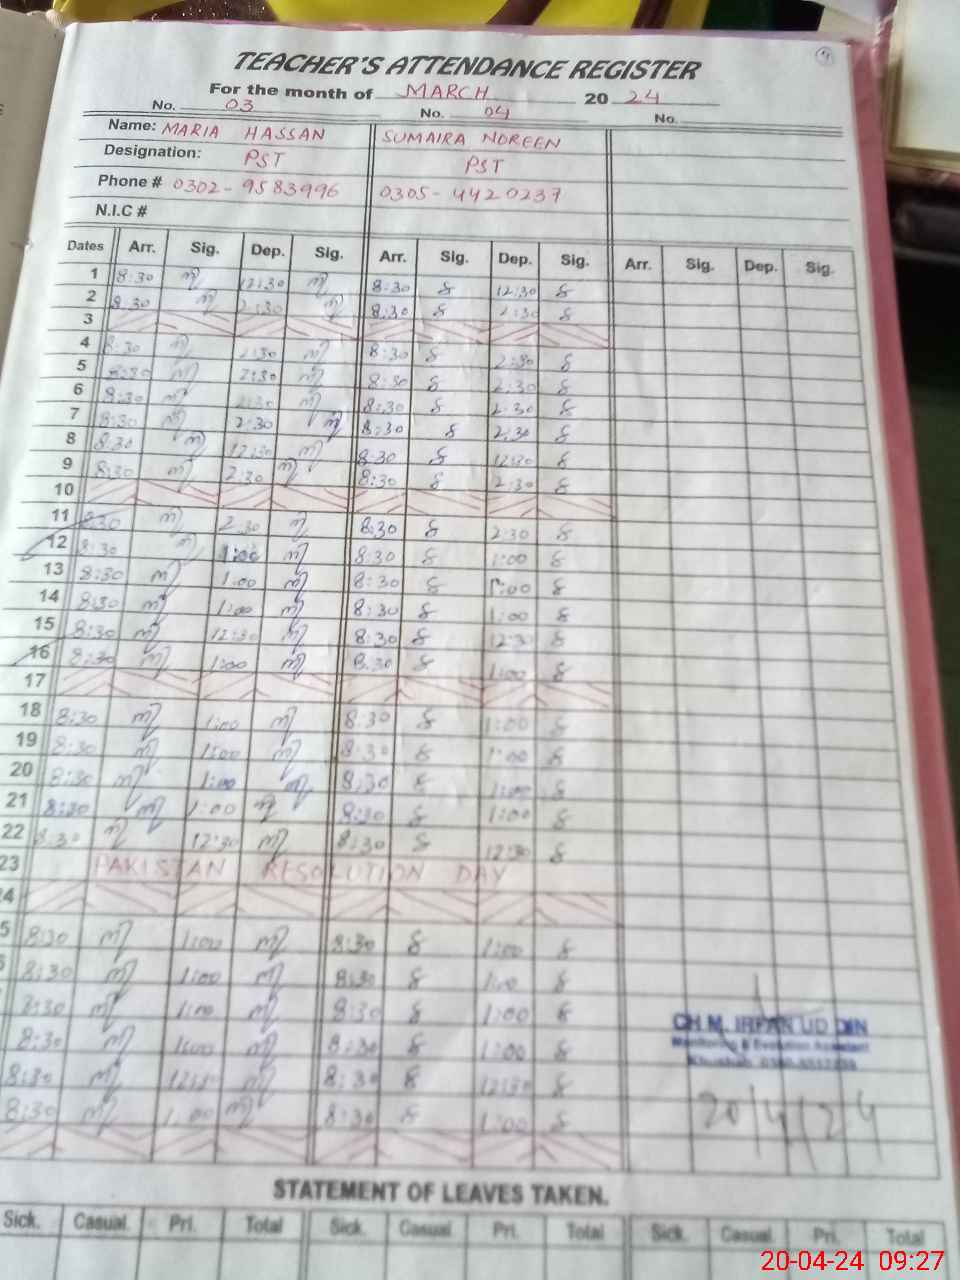 4
TEACHER'S ATTENDANCE REGISTER
For the month of MARCH 20 24
No. 03 No. 04 No.
Name: MARIA HASSAN SUMAIRA NOREEN
Designation: PST PST
Phone # 0302-9583996 0305-4420237
N.I.C #
Dates Arr. Sig. Dep. Sig. Arr. Sig. Dep. Sig. Arr. Sig. Dep. Sig.
1 8:30 12:30 8:30 12:30
2 8:30 2:30 8:30 2:30
3
4 8:30 2:30 8:30 2:30
5 8:30 2:30 8:30 2:30
6 8:30 2:30 8:30 2:30
7 8:30 2:30 8:30 2:30
8 8:30 12:30 8:30 12:30
9 8:30 2:30 8:30 2:30
10
11 8:30 2:30 8:30 2:30
12 8:30 1:00 8:30 1:00
13 8:30 1:00 8:30 1:00
14 8:30 1:00 8:30 1:00
15 8:30 12:30 8:30 12:30
16 8:30 1:00 8:30 1:00
17
18 8:30 1:00 8:30 1:00
19 8:30 1:00 8:30 1:00
20 8:30 1:00 8:30 1:00
21 8:30 1:00 8:30 1:00
22 8:30 12:30 8:30 12:30
23 PAKISTAN RESOLUTION DAY
4
5 8:30 1:00 8:30 1:00
8:30 1:00 8:30 1:00
8:30 1:00 8:30 1:00
8:30 1:00 8:30 1:00
8:30 12:30 8:30 12:30
8:30 1:00 8:30 1:00
CH M. IRFAN UD DIN
Monitoring & Evalution Assistant
20/4/24
STATEMENT OF LEAVES TAKEN.
Sick. Casual. Pri. Total Sick. Casual. Pri. Total Sick. Casual. Pri. Total
20-04-24 09:27